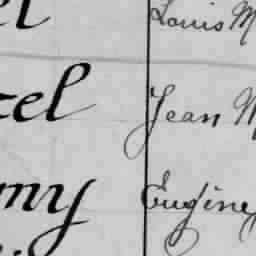 el Louis M
zel Jean M
my Eugène